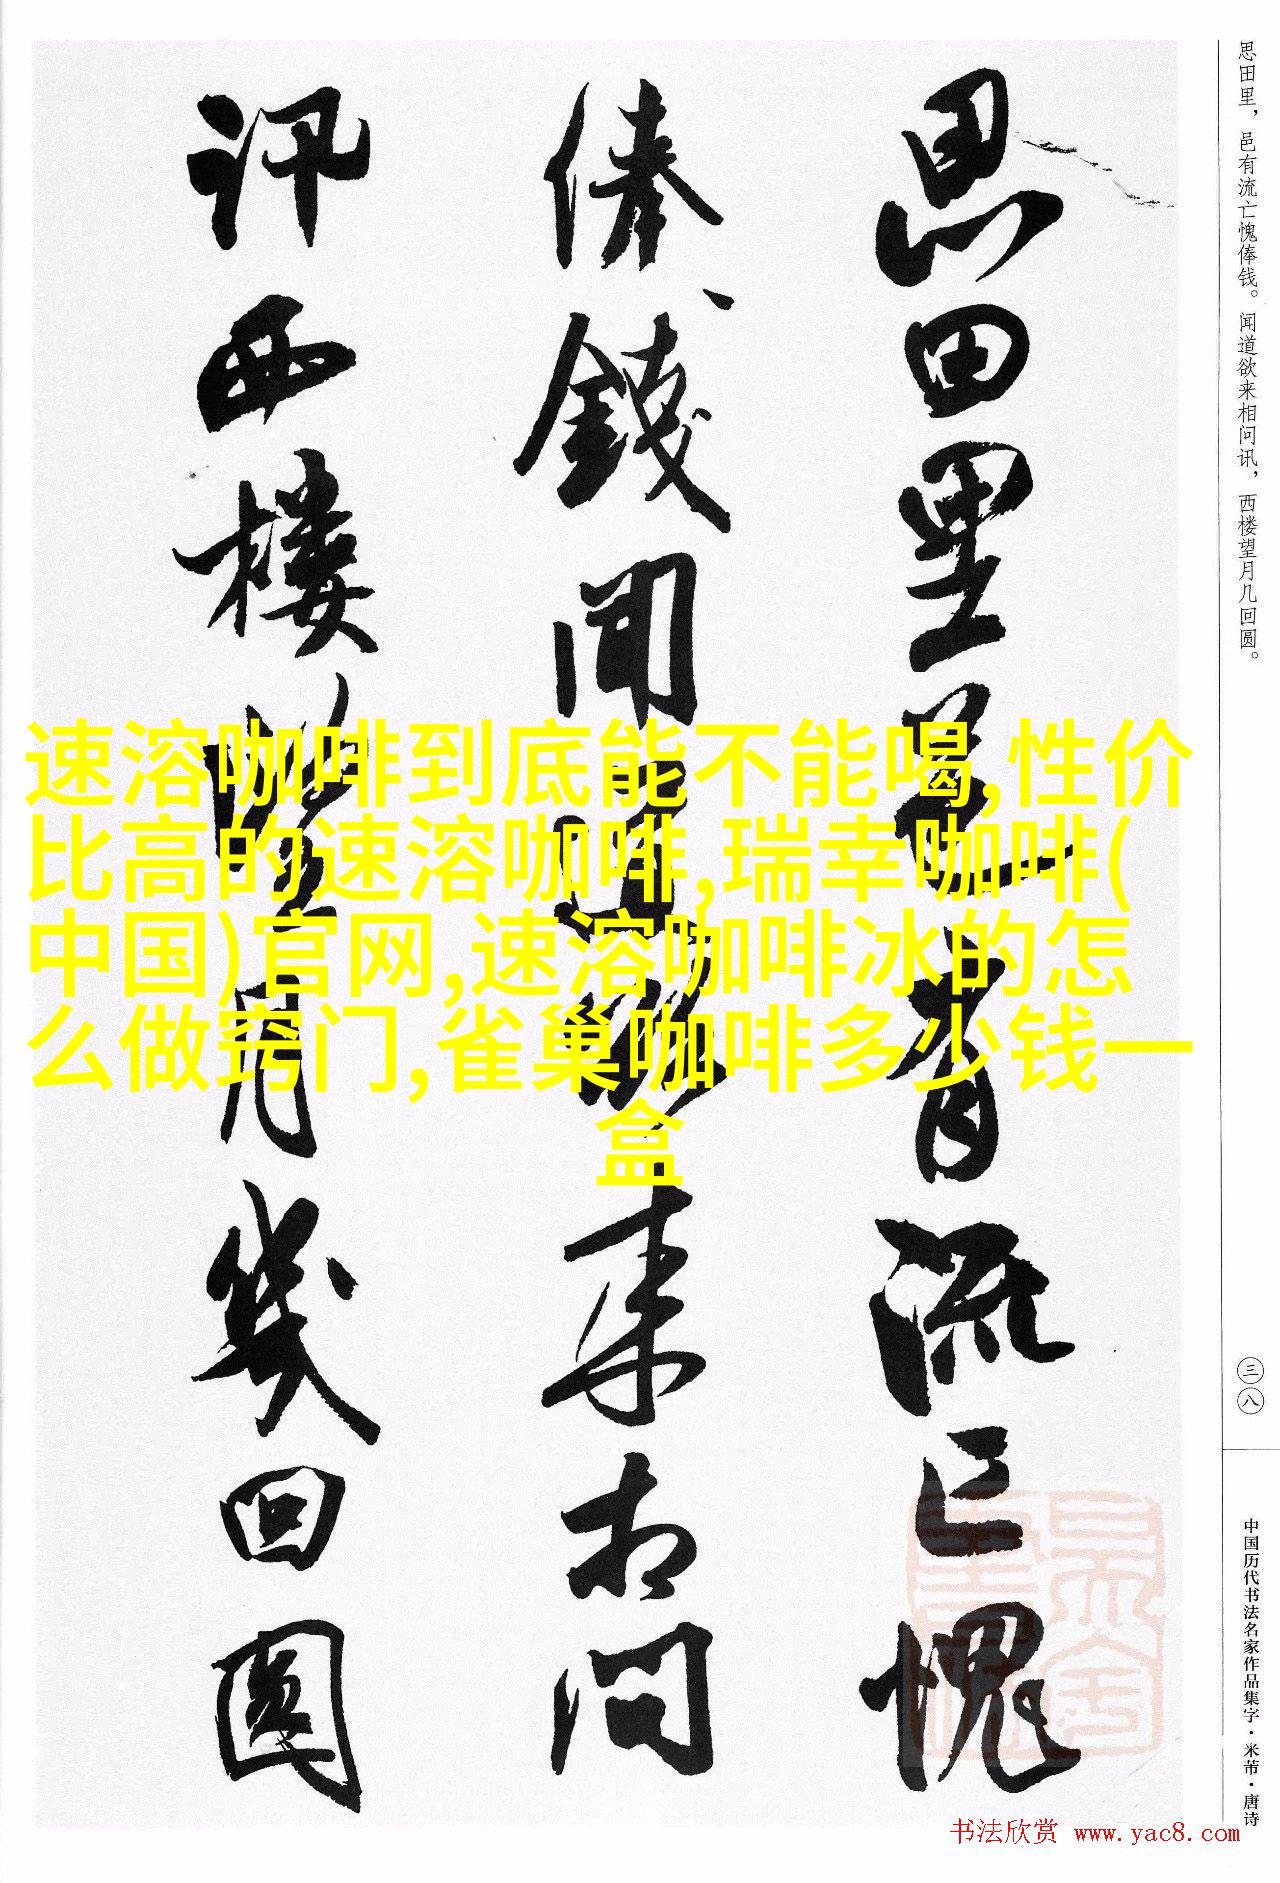 思田里邑有流亡愧
俸钱闻道欲来相问
讯西楼望月几回圆
思田里，邑有流亡愧俸钱。闻道欲来相问讯，西楼望月几回圆。
三八
中国历代书法名家作品集字·米芾·唐诗
速溶咖啡到底能不能喝,性价
比高的速溶咖啡,瑞幸咖啡(
中国)官网,速溶咖啡冰的怎
么做窍门,雀巢咖啡多少钱一
盒
书法欣赏 www.yac8.com